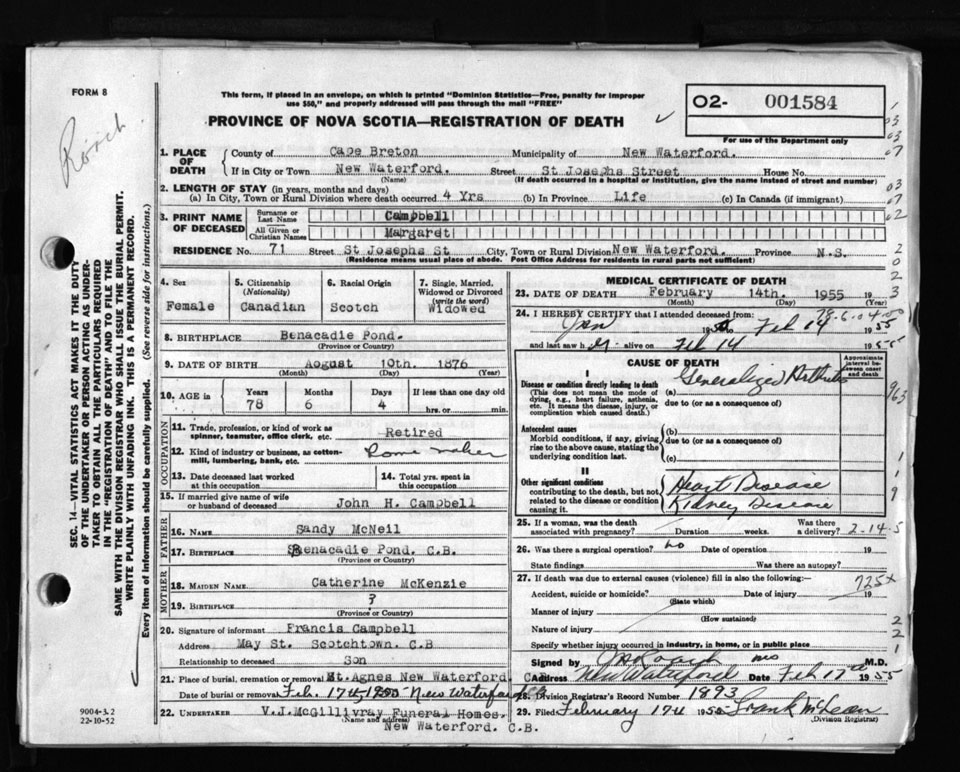 FORM 8
Roach
This form, if placed in an envelope, on which is printed "Dominion Statistics—Free, penalty for improper
use $50," and properly addressed will pass through the mail "FREE"
PROVINCE OF NOVA SCOTIA—REGISTRATION OF DEATH
O2- 001584
For use of the Department only
1. PLACE OF DEATH County of Cape Breton Municipality of New Waterford.
If in City or Town New Waterford. Street St Josephs Street House No.
(Name) (If death occurred in a hospital or institution, give the name instead of street and number)
2. LENGTH OF STAY (in years, months and days)
(a) In City, Town or Rural Division where death occurred 4 Yrs (b) In Province Life (c) In Canada (if immigrant)
3. PRINT NAME OF DECEASED Surname or Last Name Campbell
All Given or Christian Names Margaret
RESIDENCE No. 71 Street St Josephs St City, Town or Rural Division New Waterford. Province N.S.
(Residence means usual place of abode. Post Office Address for residents in rural parts not sufficient)
4. Sex Female
5. Citizenship (Nationality) Canadian
6. Racial Origin Scotch
7. Single, Married, Widowed or Divorced (write the word) Widowed
8. BIRTHPLACE Benacadie Pond.
(Province or Country)
9. DATE OF BIRTH August 10th. 1876
(Month) (Day) (Year)
10. AGE in Years 78 Months 6 Days 4 If less than one day old hrs. or min.
OCCUPATION
11. Trade, profession, or kind of work as spinner, teamster, office clerk, etc. Retired
12. Kind of industry or business, as cotton-mill, lumbering, bank, etc. Home maker
13. Date deceased last worked at this occupation
14. Total yrs. spent in this occupation
15. If married give name of wife or husband of deceased John H. Campbell
FATHER
16. NAME Sandy McNeil
17. BIRTHPLACE Benacadie Pond. C.B.
(Province or Country)
MOTHER
18. MAIDEN NAME Catherine McKenzie
19. BIRTHPLACE ?
(Province or Country)
20. Signature of informant Francis Campbell
Address May St. Scotchtown. C.B
Relationship to deceased Son
21. Place of burial, cremation or removal St. Agnes New Waterford.
Date of burial or removal Feb. 17th 1955 New Waterford C.B.
22. UNDERTAKER V.J. McGillivray Funeral Homes,
(Name and Address)
New Waterford. C.B.
MEDICAL CERTIFICATE OF DEATH
23. DATE OF DEATH February 14th. 1955 19
(Month) (Day) (Year)
24. I HEREBY CERTIFY that I attended deceased from:
Jan 19 to Feb 14 1955
and last saw her alive on Feb 14 1955
CAUSE OF DEATH
Approximate interval between onset and death
I
Disease or condition directly leading to death
(This does not mean the mode of dying, e.g., heart failure, asthenia, etc. It means the disease, injury, or complication which caused death.)
(a) Generalized Arthritis
due to (or as a consequence of)
Antecedent causes
Morbid conditions, if any, giving rise to the above cause, stating the underlying condition last.
(b)
due to (or as a consequence of)
(c)
II
Other significant conditions
contributing to the death, but not related to the disease or condition causing it.
Heart Disease
Kidney Disease
25. If a woman, was the death associated with pregnancy? Duration weeks. Was there a delivery?
2-14-5
26. Was there a surgical operation? no Date of operation 19
State findings Was there an autopsy?
27. If death was due to external causes (violence) fill in also the following:—
725x
Accident, suicide or homicide? Date of injury 19
(State which)
Manner of injury
(How sustained)
Nature of injury
Specify whether injury occurred in industry, in home, or in public place
Signed by M.D.
Address New Waterford Date Feb 17th 1955
28. Division Registrar's Record Number 1893
29. Filed February 17th 1955 Frank McLean
(Division Registrar)
SEC. 14—VITAL STATISTICS ACT MAKES IT THE DUTY
OF THE UNDERTAKER OR PERSON ACTING AS UNDER-
TAKER TO OBTAIN ALL THE PARTICULARS REQUIRED
IN THE "REGISTRATION OF DEATH" AND TO FILE THE
SAME WITH THE DIVISION REGISTRAR WHO SHALL ISSUE THE BURIAL PERMIT.
WRITE PLAINLY WITH UNFADING INK. THIS IS A PERMANENT RECORD.
Every item of information should be carefully supplied. (See reverse side for instructions.)
9004-3.2
22-10-52